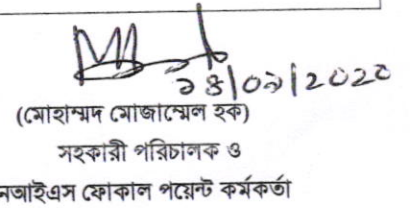 ২৪/০৯/২০২০
(মোহাম্মদ মোজাম্মেল হক)
সহকারী পরিচালক ও
নআইএস ফোকাল পয়েন্ট কর্মকর্তা